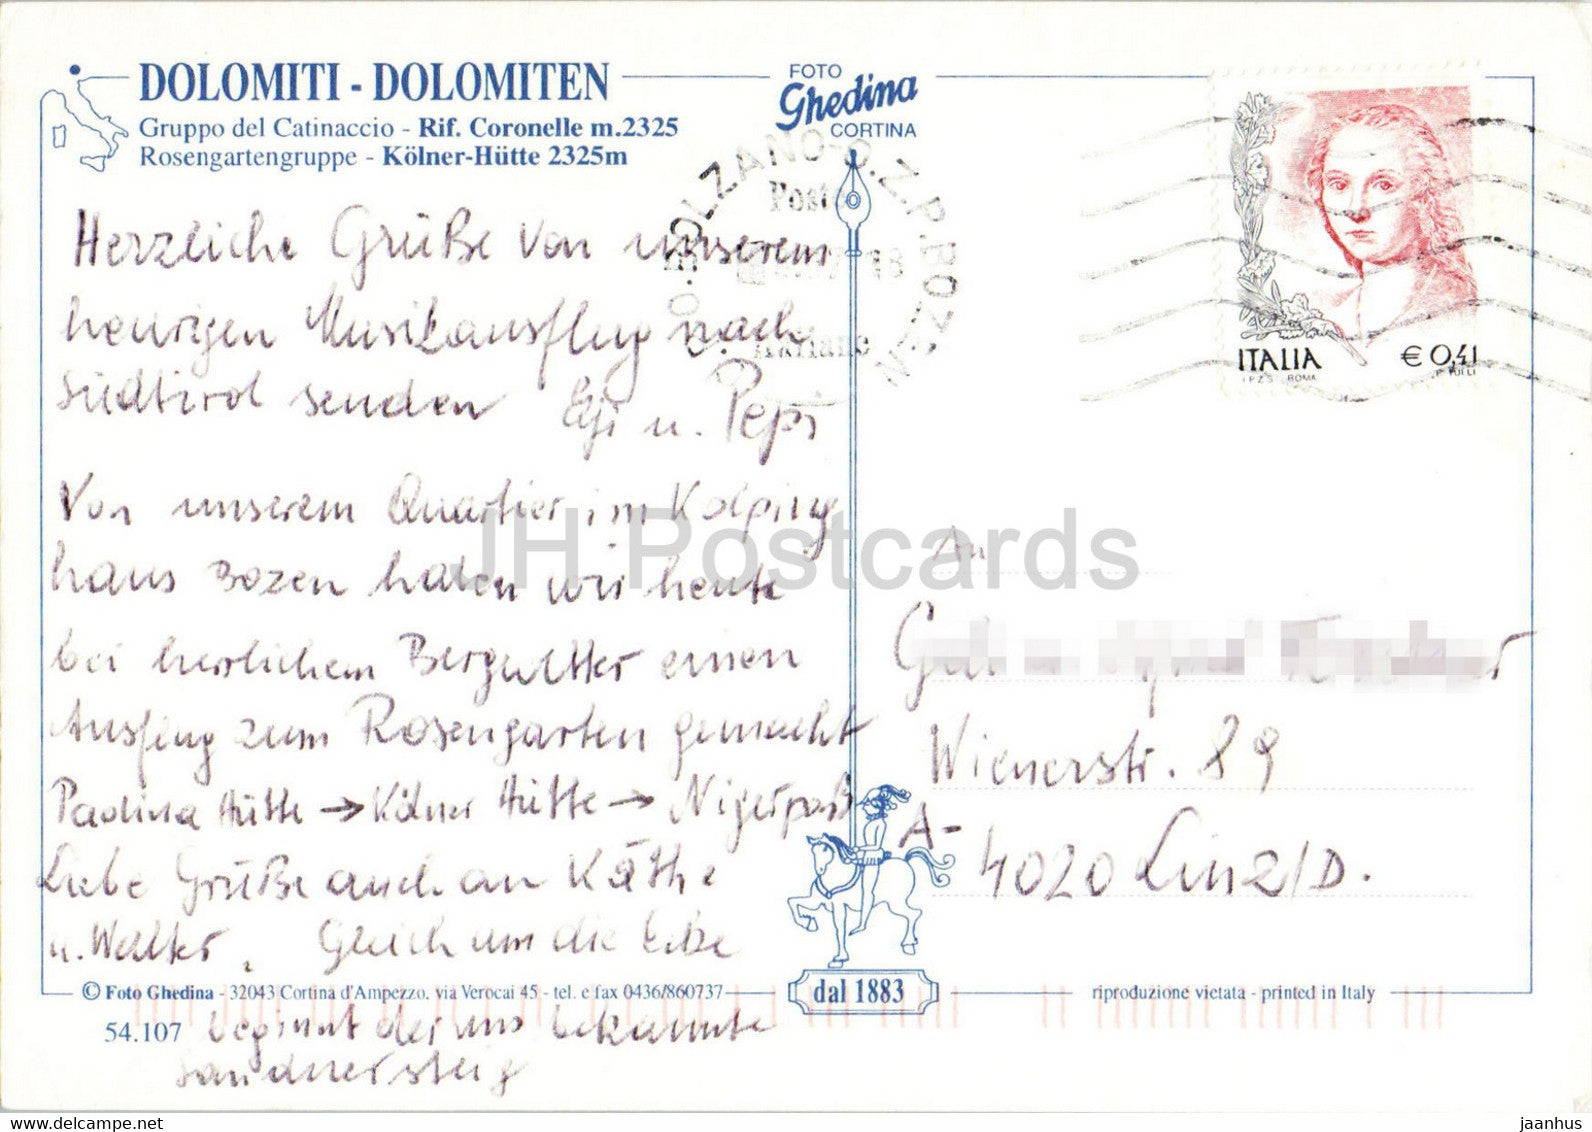 DOLOMITI - DOLOMITEN
Gruppo del Catinaccio - Rif. Coronelle m.2325
Rosengartengruppe - Kölner-Hütte 2325m
FOTO
Ghedina
CORTINA
BOLZANO-C.Z.P. BOZEN
Poste
Italiane
ITALIA
€ 0,41
I.P.Z.S. ROMA
Herzliche Grüße von unserem
heurigen Musikausflug nach
Südtirol senden u. Pepi
Von unserem Quartier im Kolping
haus Bozen haben wir heute
bei herrlichem Bergwetter einen
Ausflug zum Rosengarten gemacht
Paolina Hütte → Kölner Hütte → Nigerpaß
Liebe Grüße auch an Käthe
u. Walter. Gleich um die Ecke
beginnt der uns bekannte
Santnersteig
An
Wienerstr. 89
A-
4020 Linz/D.
© Foto Ghedina - 32043 Cortina d'Ampezzo, via Verocai 45 - tel. e fax 0436/860737
54.107
dal 1883
riproduzione vietata - printed in Italy
JH Postcards
www.delcampe.net
jaanhus